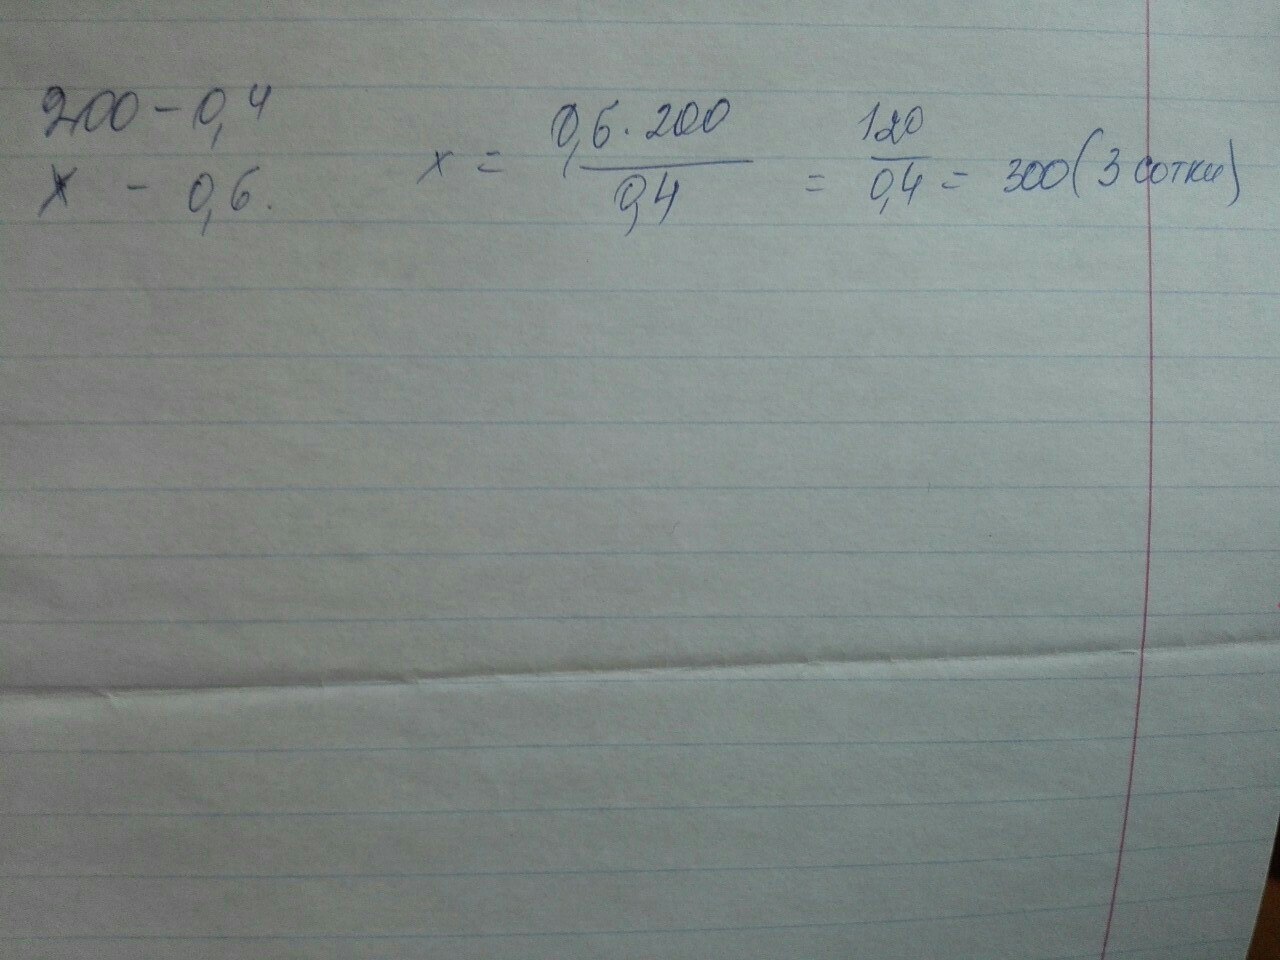 200 - 0,4
x - 0,6.
x = 0,6 · 200 / 0,4 = 120 / 0,4 = 300 (3 сотки)